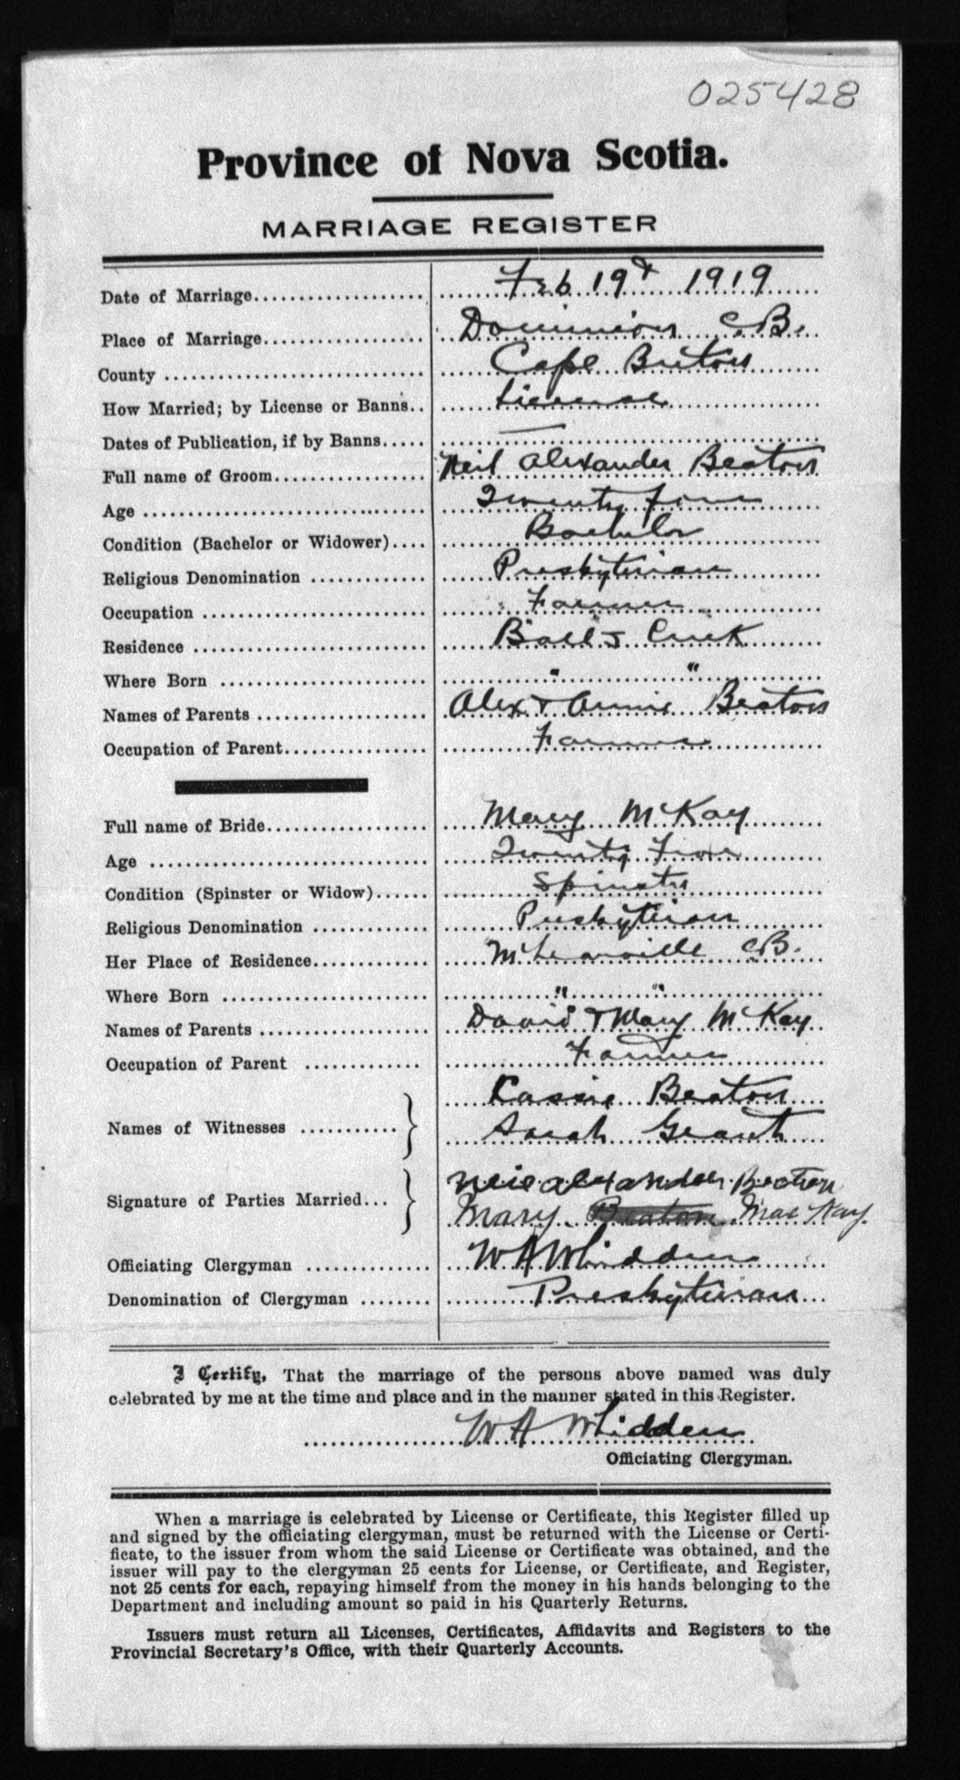 025428
Province of Nova Scotia.
MARRIAGE REGISTER
Date of Marriage.................... Feb 19th 1919
Place of Marriage................... Dominion C.B.
County ............................. Cape Breton
How Married; by License or Banns.. License
Dates of Publication, if by Banns..... —
Full name of Groom................. Neil Alexander Beaton
Age ................................ Twenty five
Condition (Bachelor or Widower).... Bachelor
Religious Denomination ............ Presbyterian
Occupation ......................... Farmer
Residence .......................... Balls Creek
Where Born ....................... " "
Names of Parents ................... Alex & Annie Beaton
Occupation of Parent................ Farmer
Full name of Bride.................. Mary McKay
Age ................................ Twenty Five
Condition (Spinster or Widow)...... Spinster
Religious Denomination ............ Presbyterian
Her Place of Residence............. McLeanville C.B.
Where Born ....................... " "
Names of Parents ................... David & Mary McKay
Occupation of Parent ............. Farmer
Names of Witnesses ........... } Kassie Beaton
Sarah Grant
Signature of Parties Married... } Neil Alexander Beaton
Mary Beaton MacKay.
Officiating Clergyman ............. W A Whidden
Denomination of Clergyman ........ Presbyterian
I Certify, That the marriage of the persons above named was duly
celebrated by me at the time and place and in the manner stated in this Register.
W A Whidden
Officiating Clergyman.
When a marriage is celebrated by License or Certificate, this Register filled up
and signed by the officiating clergyman, must be returned with the License or Certi-
ficate, to the issuer from whom the said License or Certificate was obtained, and the
issuer will pay to the clergyman 25 cents for License, or Certificate, and Register,
not 25 cents for each, repaying himself from the money in his hands belonging to the
Department and including amount so paid in his Quarterly Returns.
Issuers must return all Licenses, Certificates, Affidavits and Registers to the
Provincial Secretary's Office, with their Quarterly Accounts.